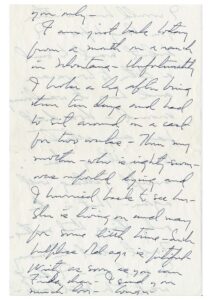 you only –
I am just back today
from a month on a ranch
in Montana – Unfortunately
I broke a leg after being
there ten days and had
to sit around in a cast
for two weeks – Then my
mother – who is eighty seven –
was reported dying and
I hurried back to see her –
She is living on and may
for some little time – Such
helpless old age is pitiful
Write as soon as you can
I send you
much love –